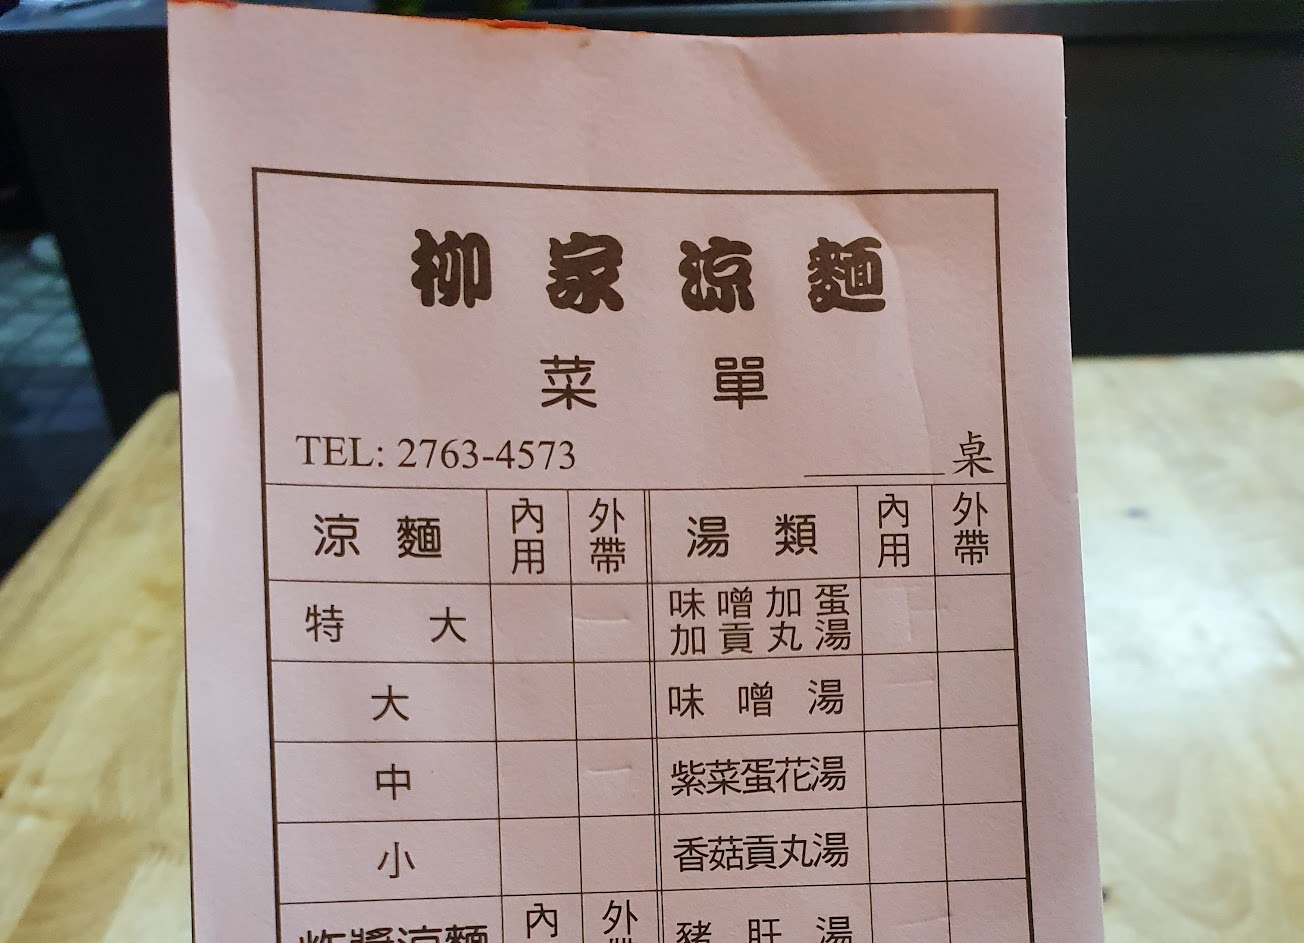 柳家涼麵
菜單
TEL: 2763-4573 桌
涼麵 內用 外帶 湯類 內用 外帶
特大 味噌加蛋加貢丸湯
大 味噌湯
中 紫菜蛋花湯
小 香菇貢丸湯
炸醬涼麵 內 外 豬肝湯